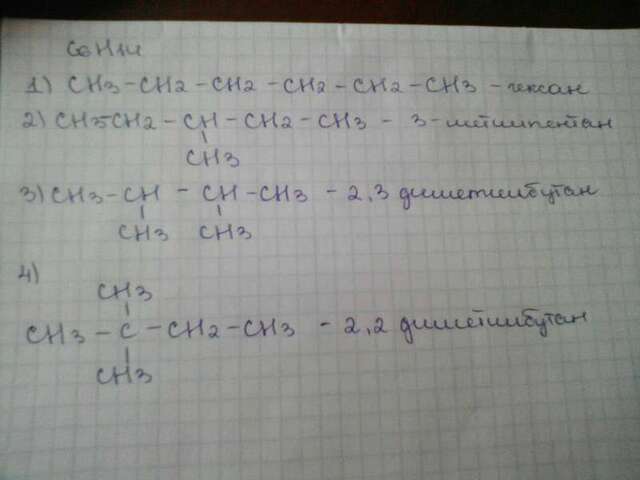 C6H14
1) CH3-CH2-CH2-CH2-CH2-CH3 - гексан
2) CH3-CH2-CH-CH2-CH3 - 3-метилпентан
CH3
3) CH3-CH - CH-CH3 - 2,3 диметилбутан
CH3 CH3
4)
CH3
CH3 - C - CH2-CH3 - 2,2 диметилбутан
CH3